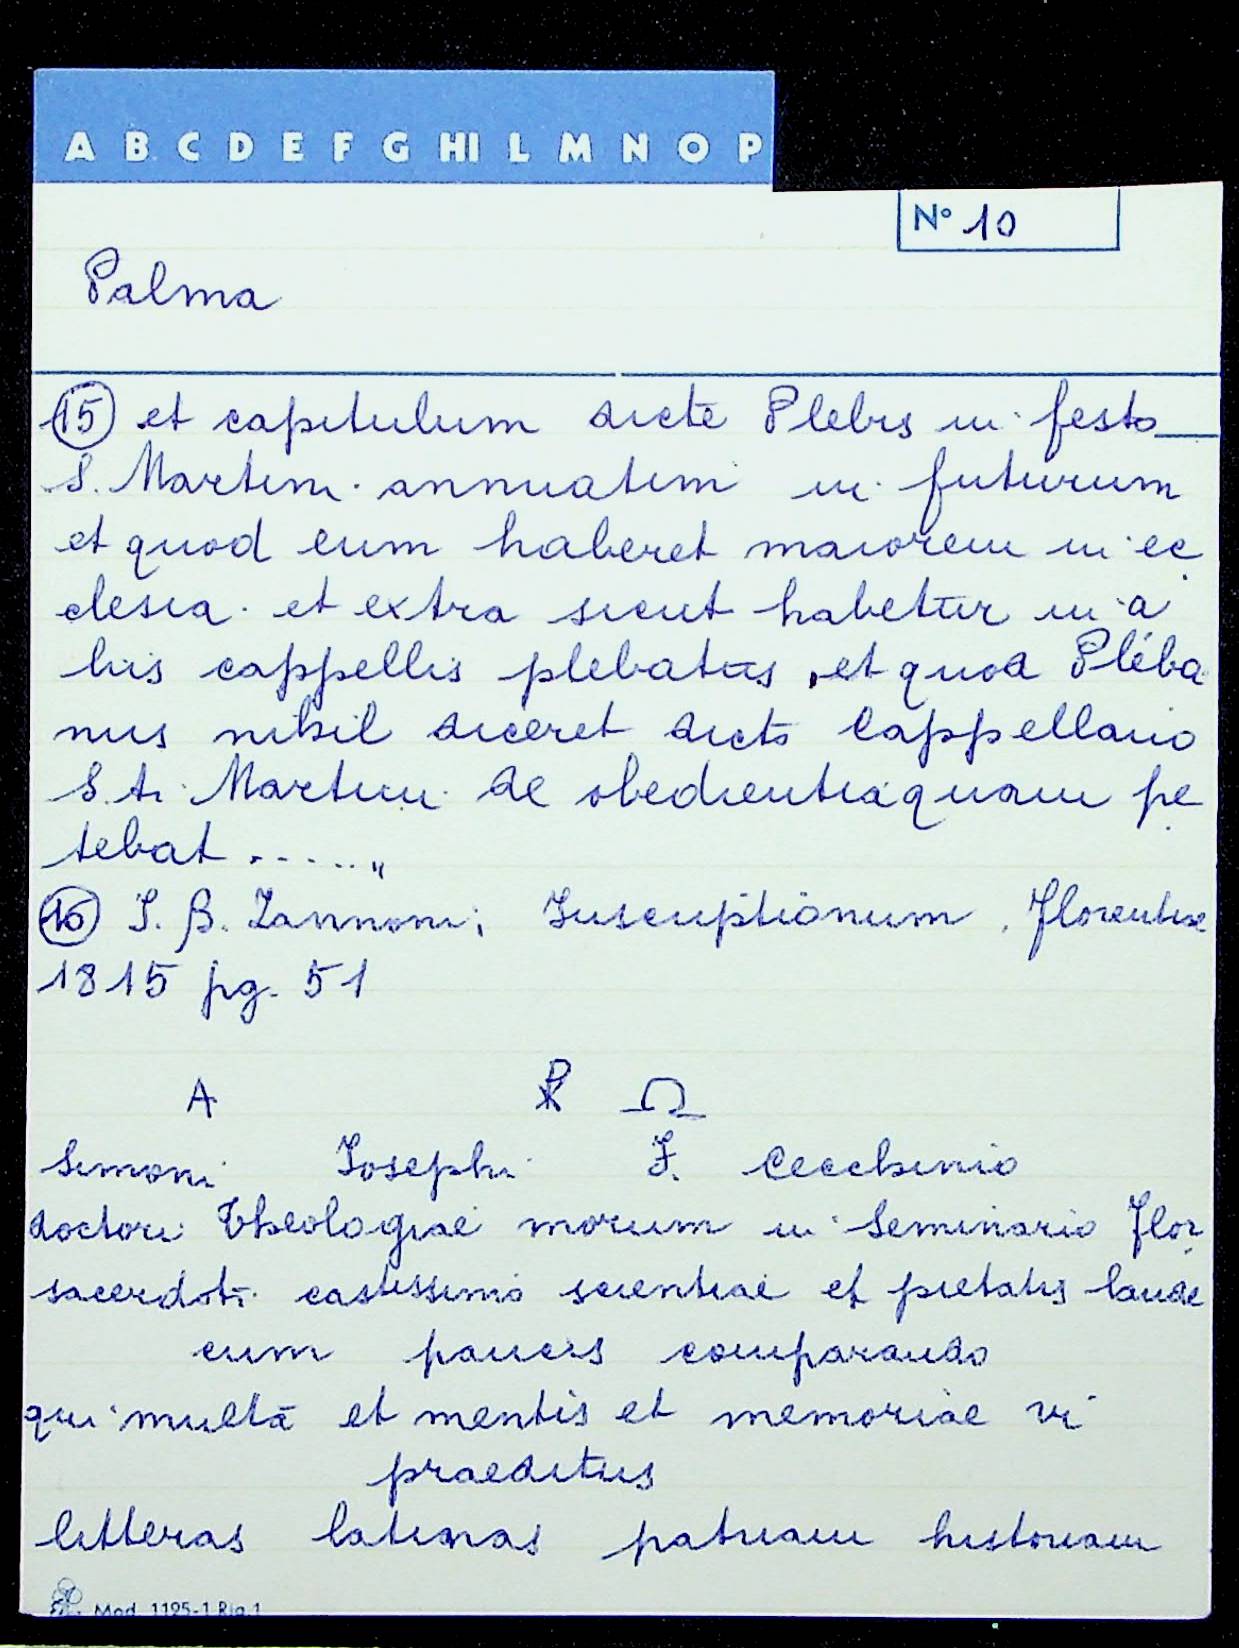 A B C D E F G HI L M N O P
N° 10
Palma
15 et capitulum dicte Plebis in festo
S. Martini annuatim in futurum
et quod eum haberet maiorem in ec
clesia et extra sicut habetur in a
liis cappellis plebatus, et quod Pleba
nus nihil diceret dicto Cappellano
S.ti Martini de obedientia quam pe
tebat ....."
16 I. B. Zannoni; Inscriptionum. Florentiae
1815 pg. 51
A ☧ Ω
Simoni Iosephi F. Cecchinio
doctori Theologiae morum in Seminario Flor
sacerdoti castissimo scientiae et pietatis laude
cum paucis comparando
qui multa et mentis et memoriae vi
praeditus
litteras latinas patriam historiam
Mod. 1195-1 Rig.1